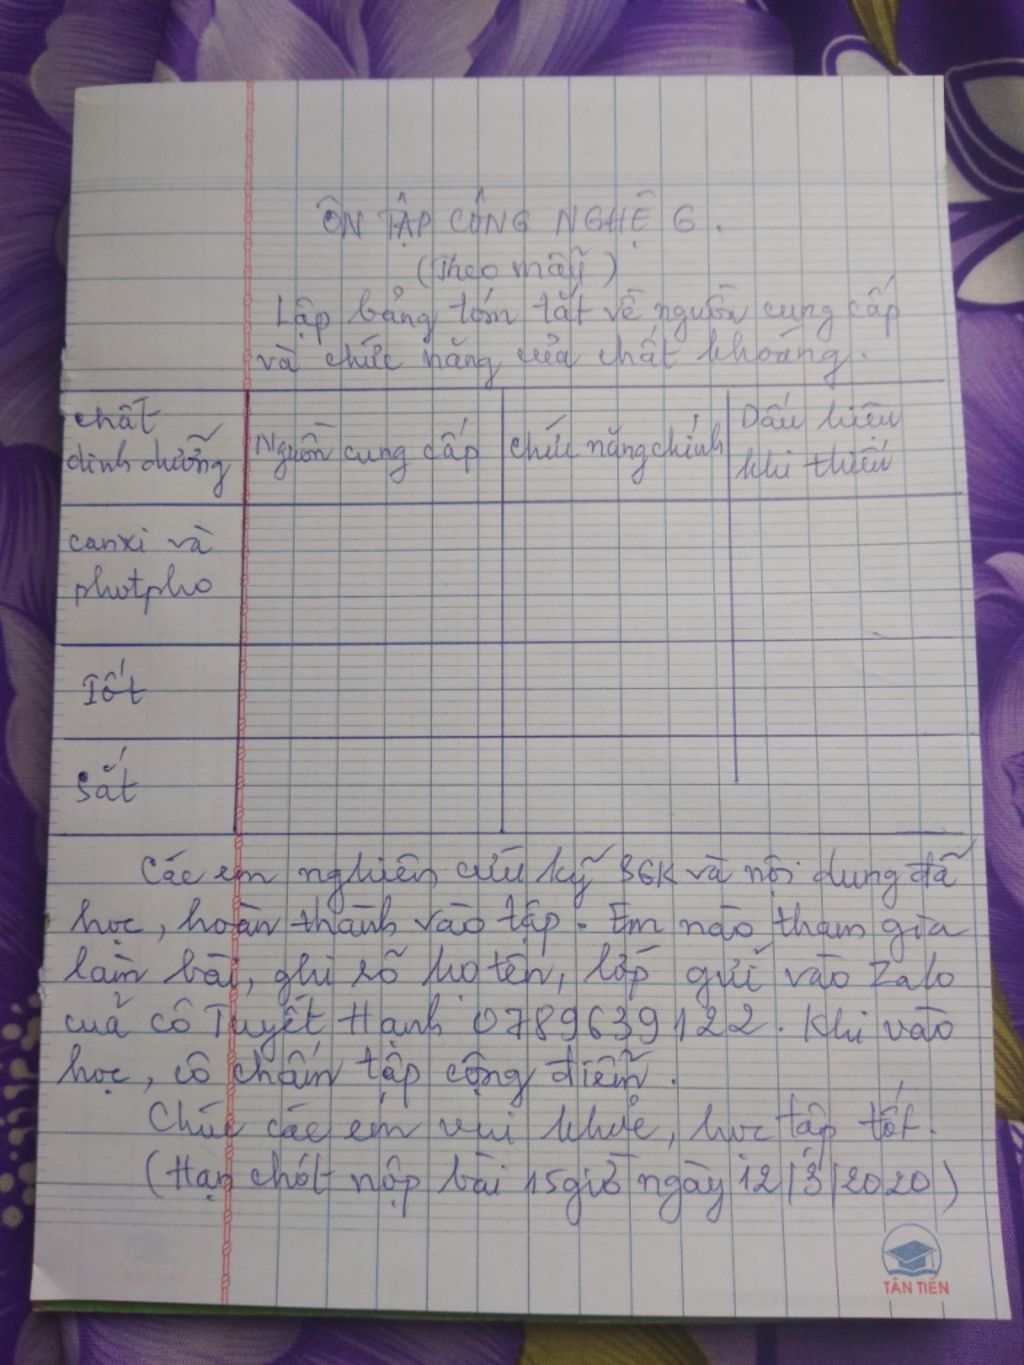 ÔN TẬP CÔNG NGHỆ 6.
(Theo mẫu)
Lập bảng tóm tắt về nguồn cung cấp
và chức năng của chất khoáng.
chất
dinh dưỡng
Nguồn cung cấp
chức năng chính
Dấu hiệu
khi thiếu
canxi và
photpho
Iốt
Sắt
Các em nghiên cứu kỹ SGK và nội dung đã
học, hoàn thành vào tập. Em nào tham gia
làm bài, ghi rõ họ tên, lớp gửi vào Zalo
của cô Tuyết Hạnh 0789639122. Khi vào
học, cô chấm tập cộng điểm.
Chúc các em vui khỏe, học tập tốt.
(Hạn chót nộp bài 15giờ ngày 12/3/2020)
TÂN TIẾN